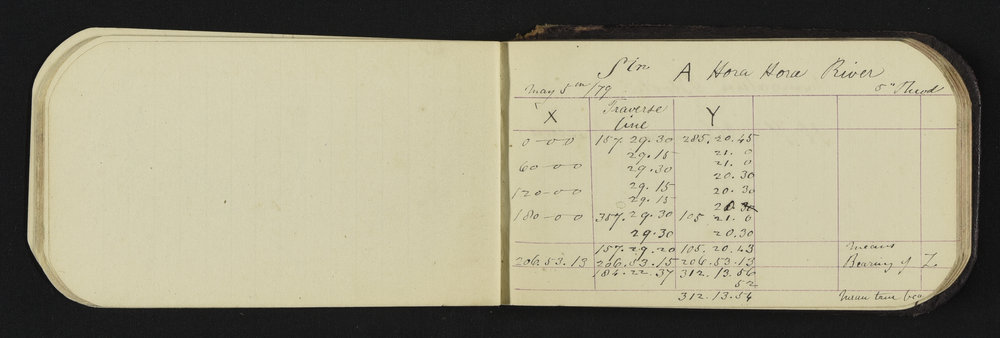 Stn A Hora Hora River
May 5th/79 5" Theod
X Traverse line Y
0-0-0 157.29.30 285.20.45
29.15 21.0
60-0-0 29.30 21.0
20.30
120-0-0 29.15 20.30
29.15
180-0-0 357.29.30 105 21.0
29.30 20.30
157.29.20 105.20.43 means
206.53.13 206.53.15 206.53.13 Bearing of Z
184.22.37 312.13.56
52
312.13.54 Mean true